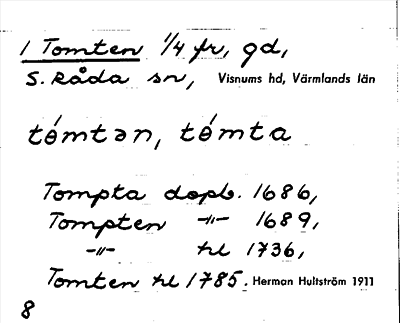 1 Tomten 1/4 fr, gd,
S. Råda sn, Visnums hd, Värmlands län
tómtən, tómta
Tompta dopb. 1686,
Tompten -"- 1689,
-"- hl 1736,
Tomten hl 1785. Herman Hultström 1911
8